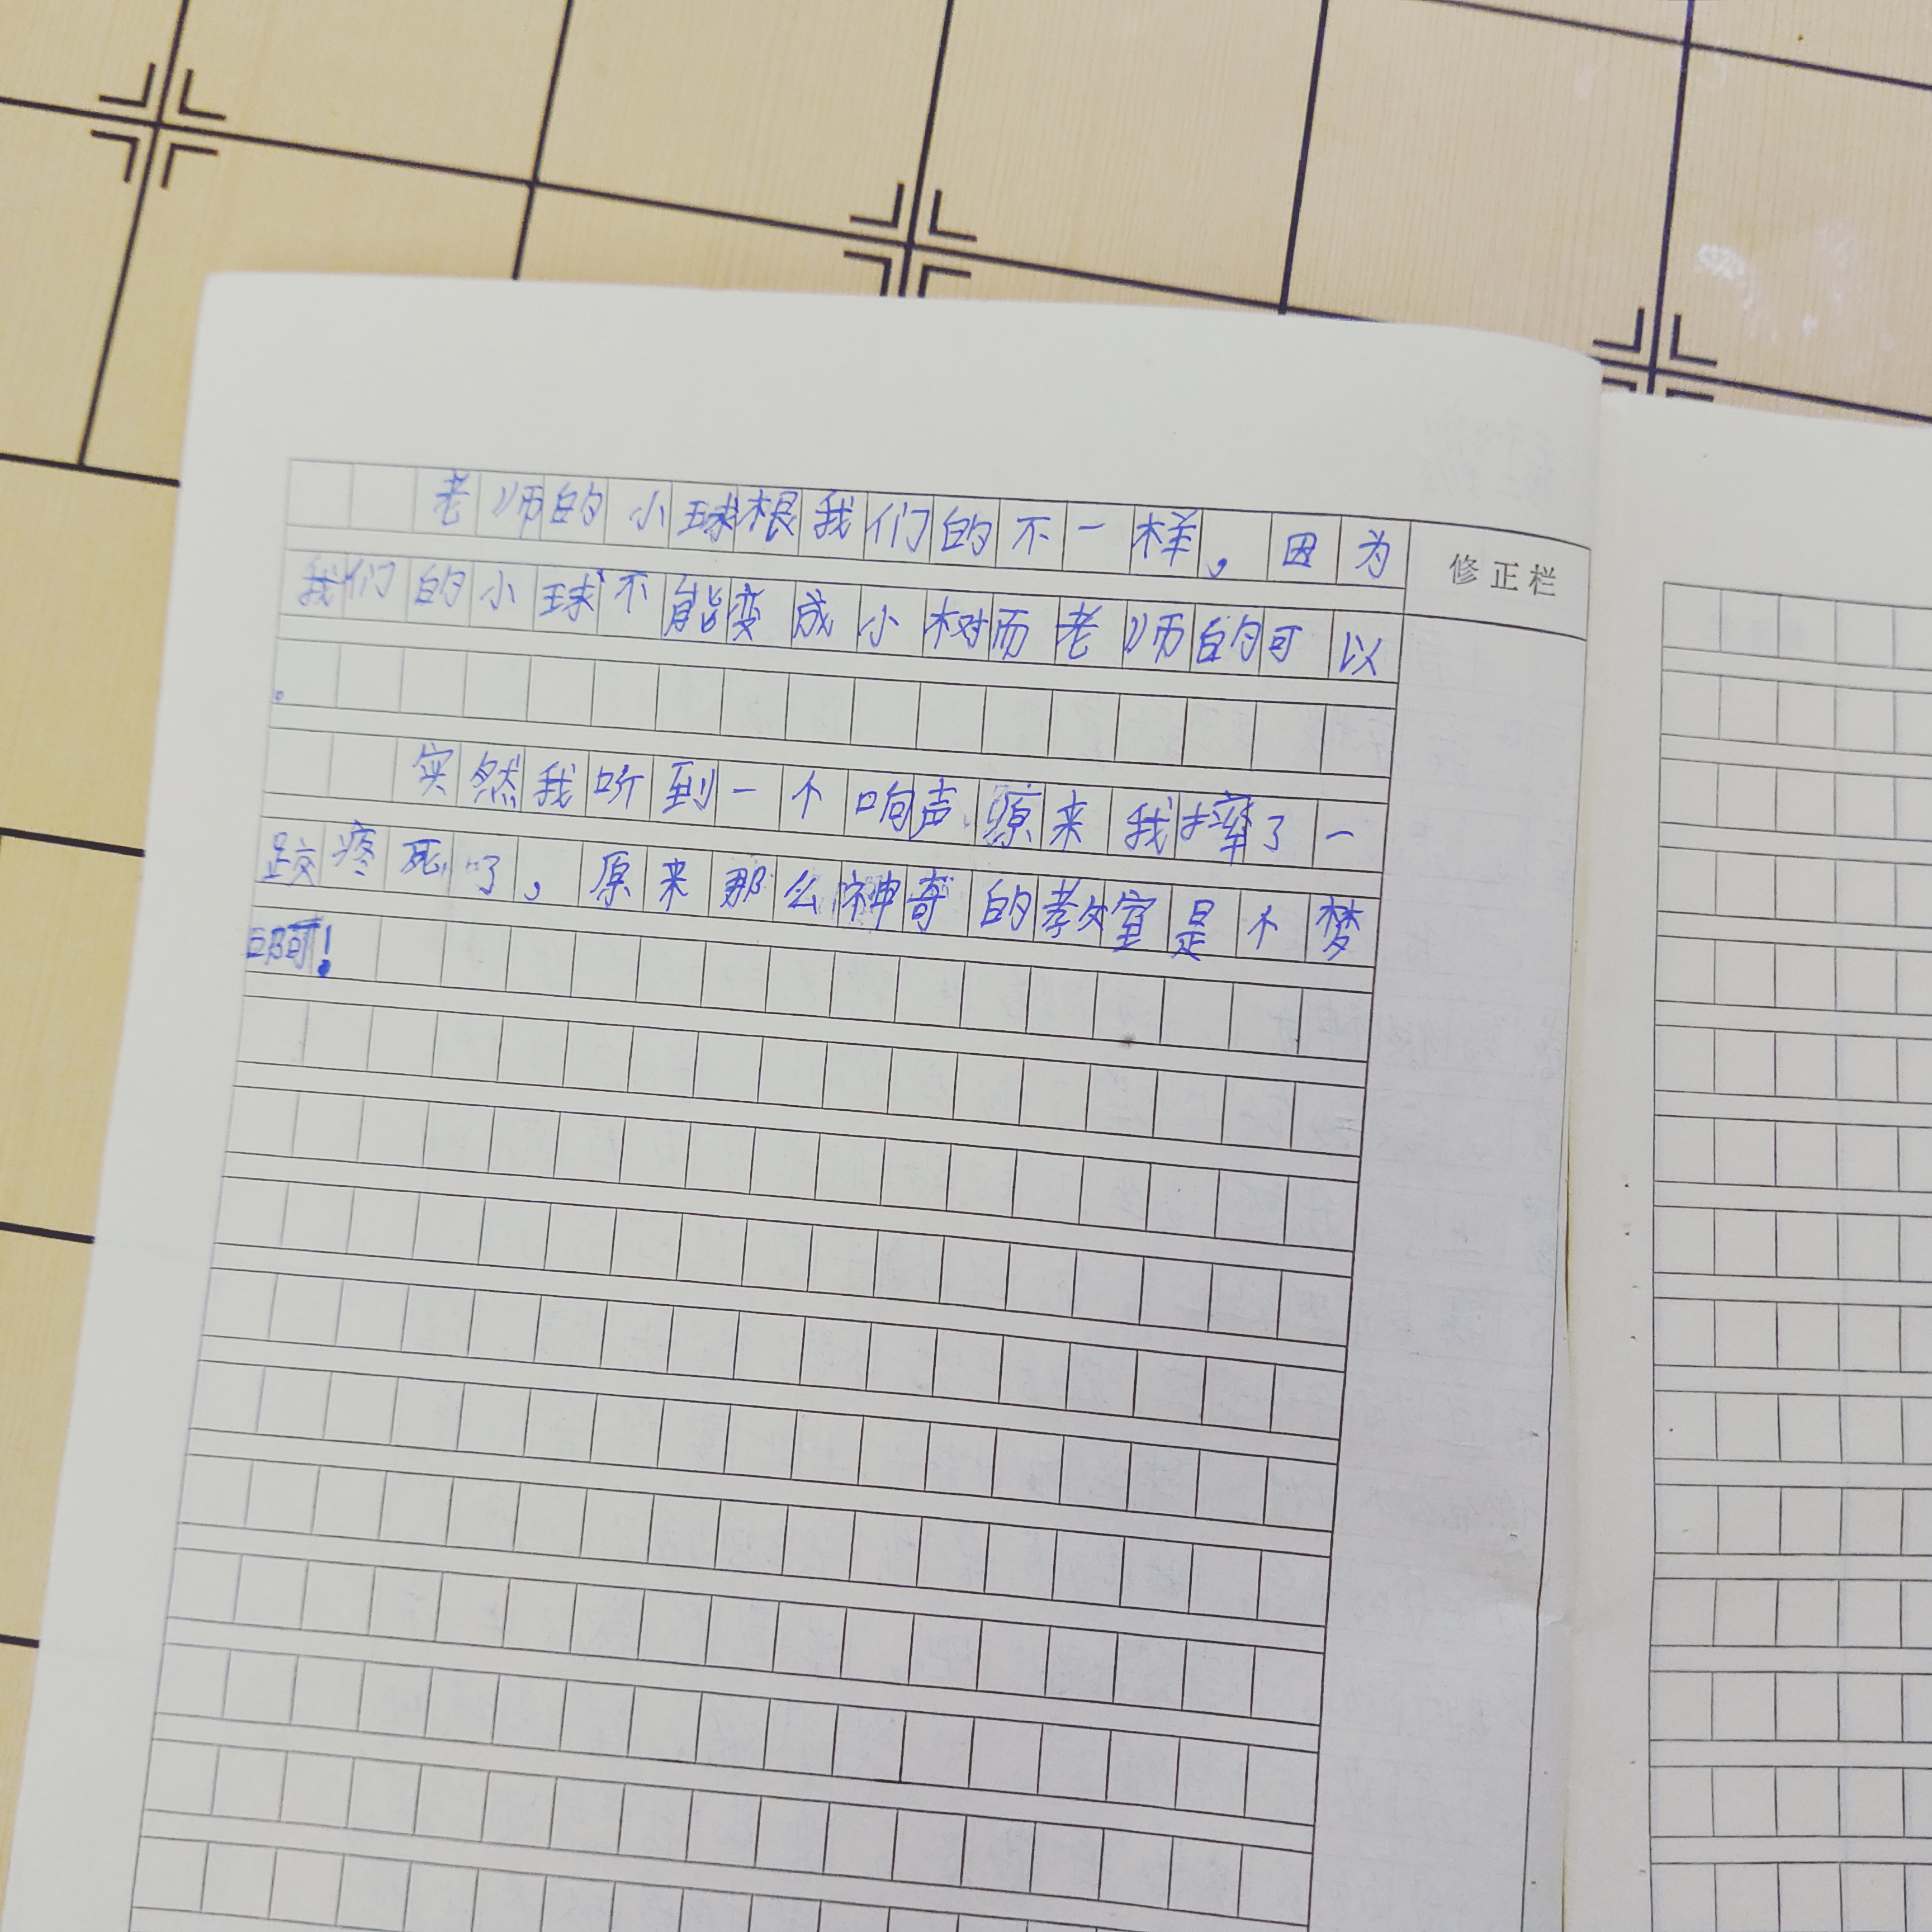 老师的小球根我们的不一样，因为
修正栏
我们的小球不能变成小树而老师的可以
。
突然我听到一个响声，原来我摔了一
跤疼死了，原来那么神奇的教室是个梦
啊！